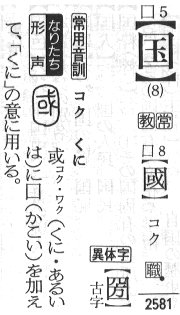 囗5
【国】
(8)
教常
囗8
【國】
コク
職
2581
異体字
古字
常用音訓 コク くに
なりたち
形声
或コク・ワク(くに・あるい
は)に囗(かこい)を加え
て、「くに」の意に用いる。